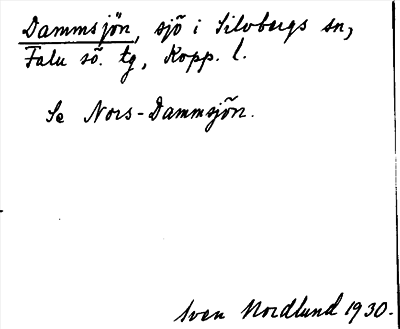 Dammsjön, sjö i Silvbergs sn,
Falu sö. tg, Kopp. l.
Se Nors-Dammsjön.
Sven Nordlund 1930.